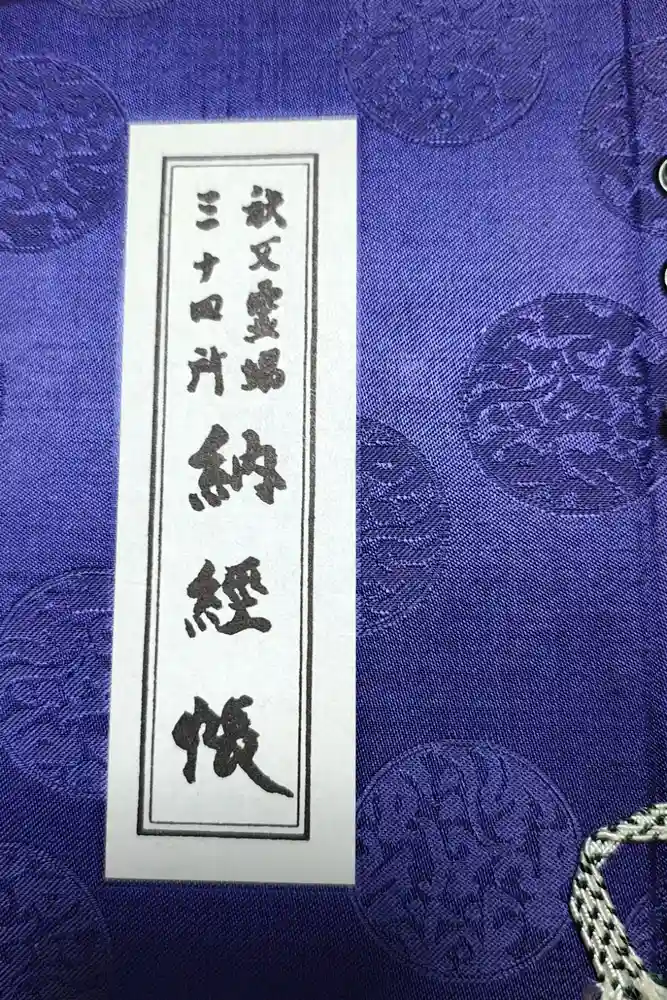 秩父霊場
三十四所
納經帳